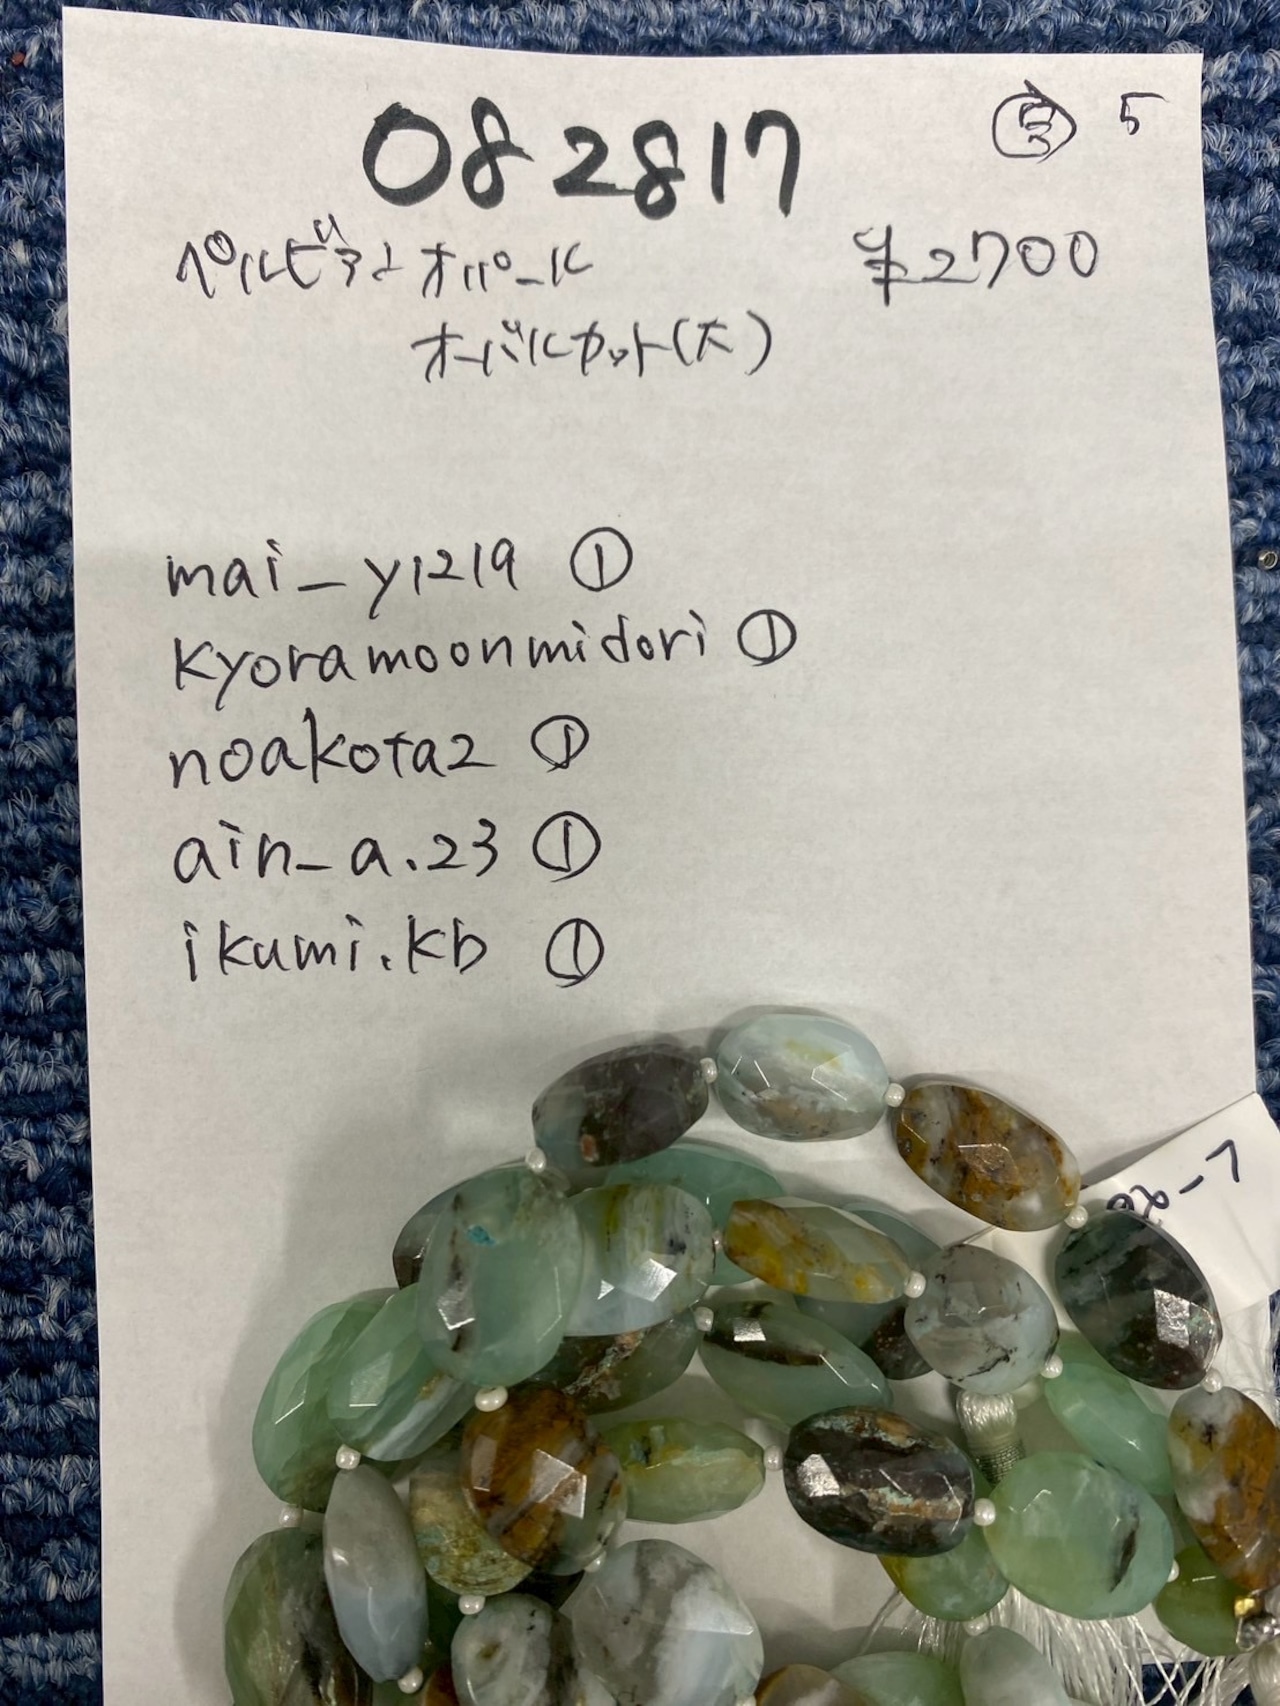 082817
5
ペルビアン オパール ¥2700
オーバルカット(大)
mai_y1219 ①
kyoramoonmidori ①
noakota2 ①
ain_a.23 ①
ikumi.kb ①